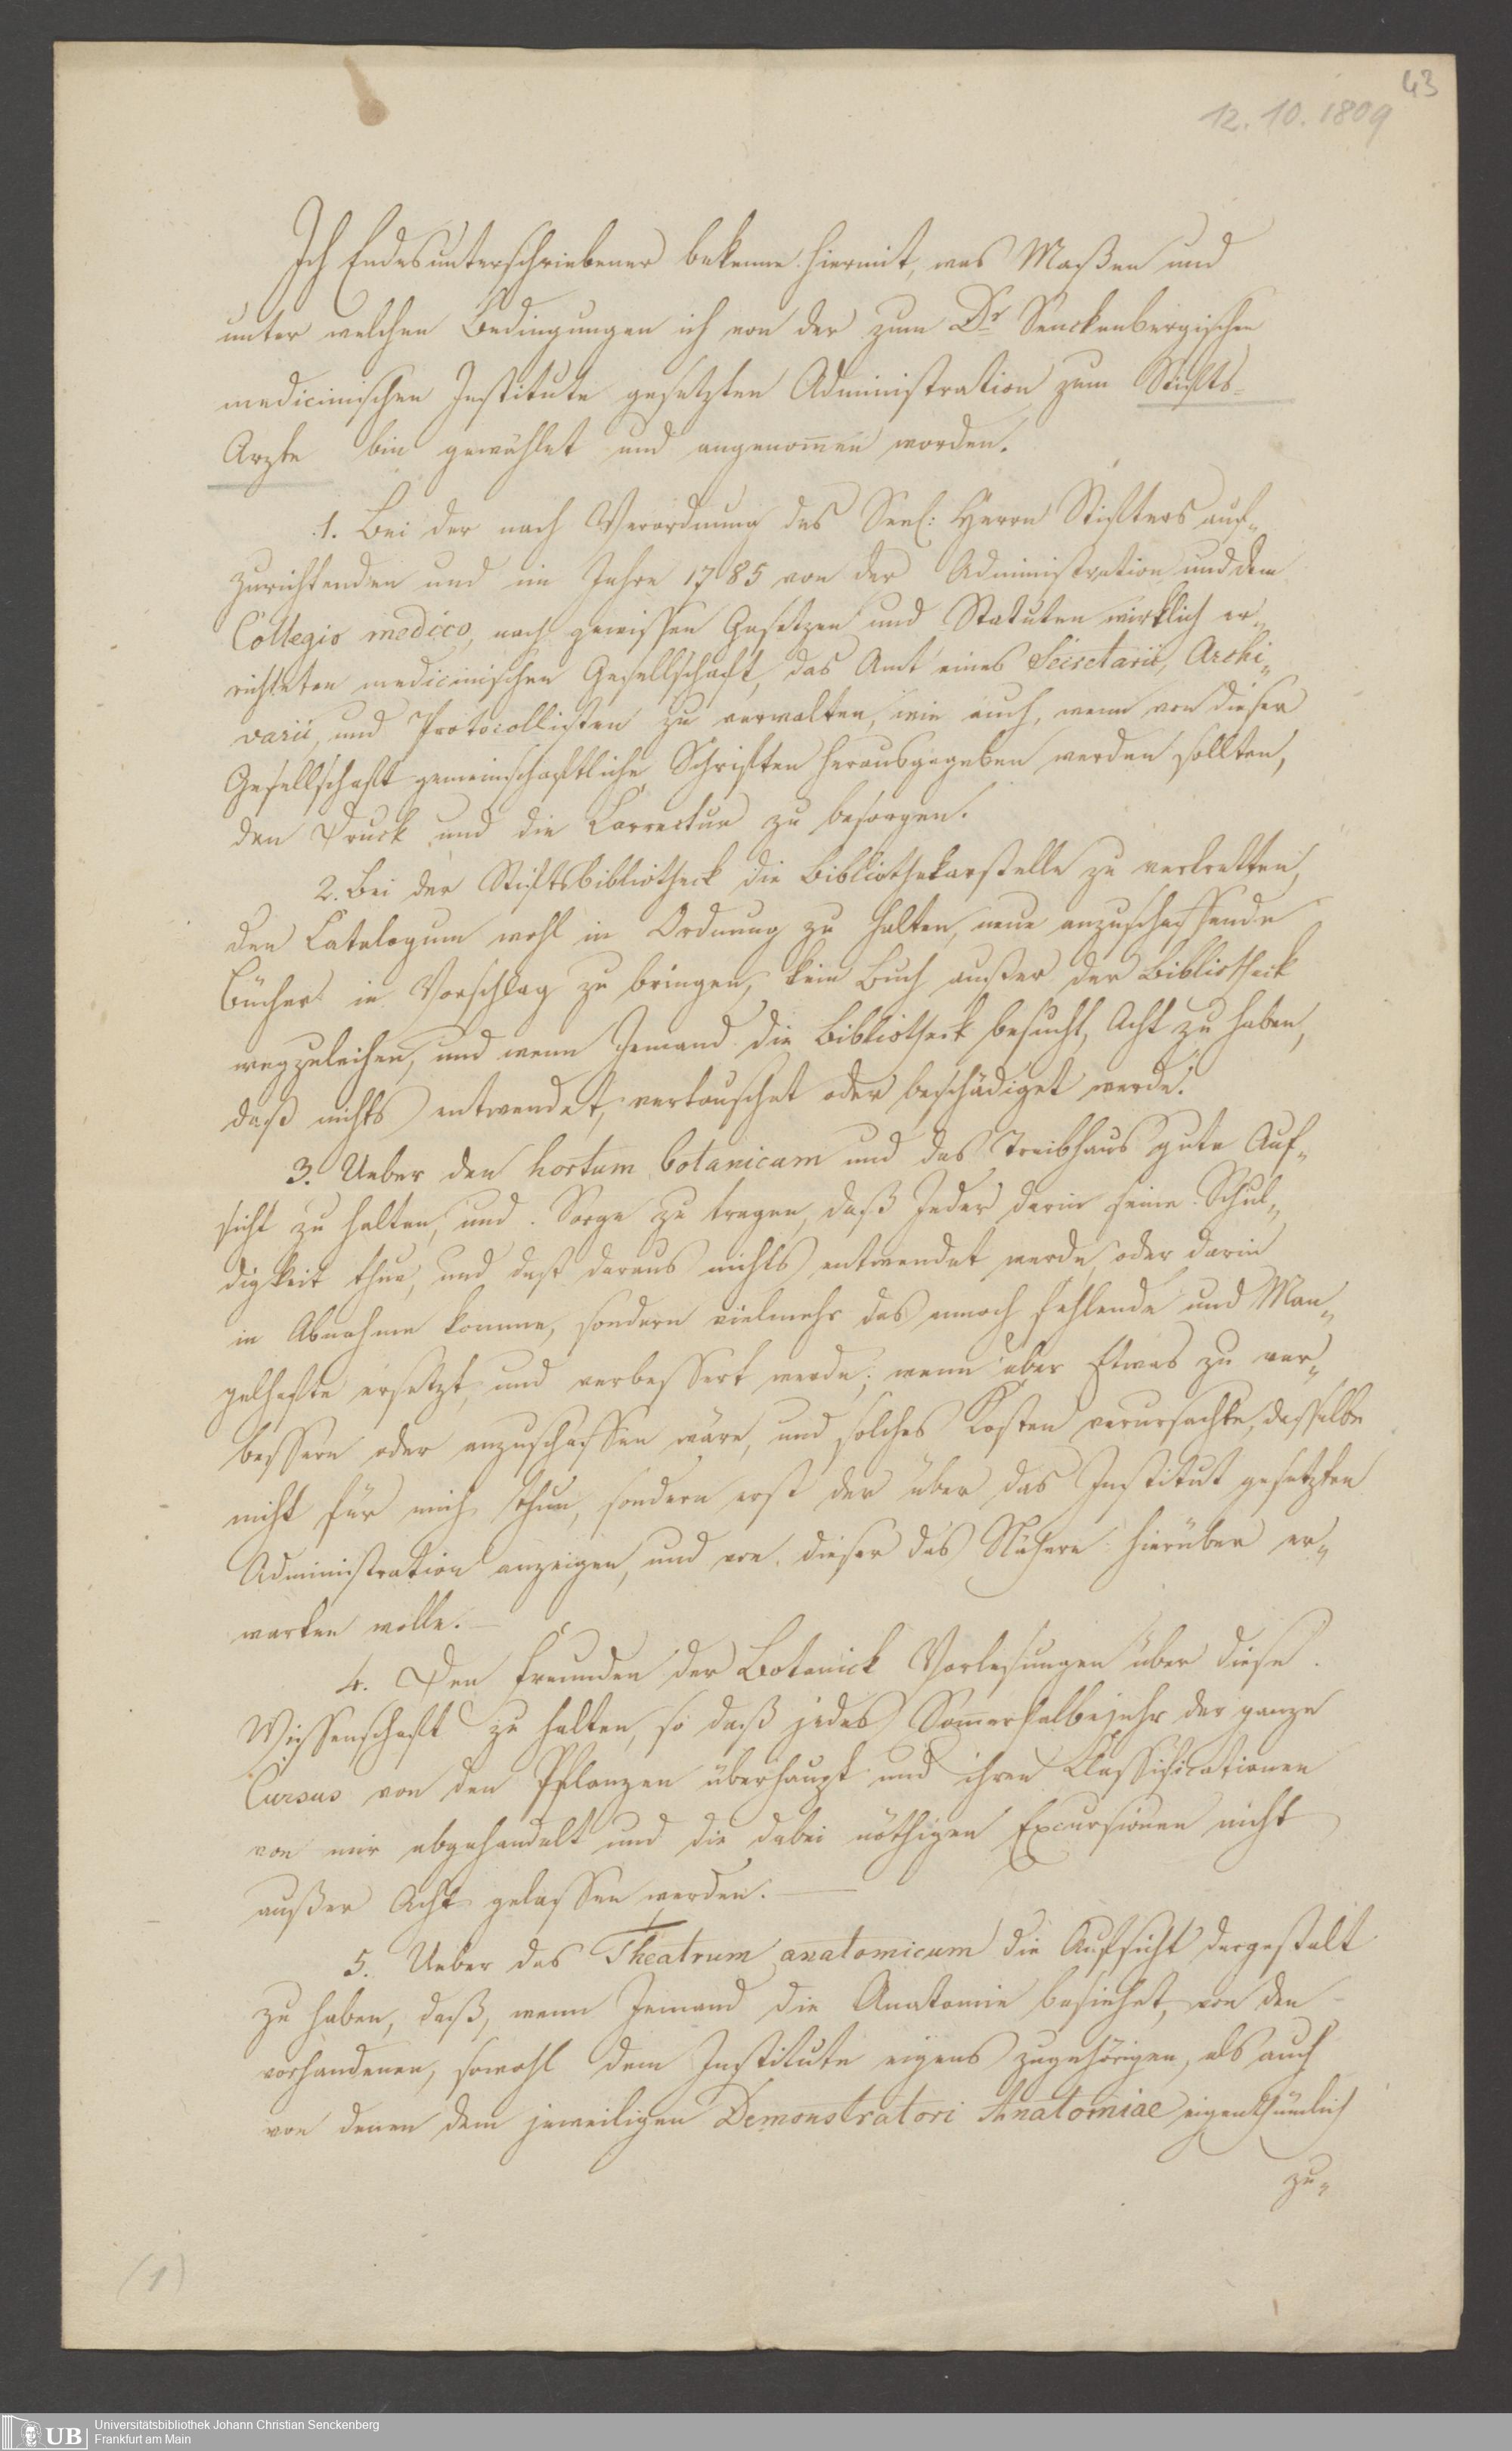 43
12. 10. 1809
Ich Endesunterschriebener bekenne hiermit, was Maßen und
unter welchen Bedingungen ich von der zum Dr Senckenbergischen
medicinischen Institute gesetzten Administration zum Stifts-
Arzte bin gewählet und angenom̅en worden.
1. Bei der nach Verordnung des Seel: Herrn Stifters auf-
zurichtenden und im Jahre 1785 von der Administration und dem
Collegio medico, nach gewissen Gesetzen und Statuten wirklich er-
richteten medicinischen Gesellschaft, das Amt eines Secretarii, Archi-
varii, und Protocollisten zu verwalten, wie auch, wenn von dieser
Gesellschaft gemeinschaftliche Schriften herausgegeben werden sollten,
den Druck und die Correctur zu besorgen.
2. Bei der Stiftsbibliotheck die Bibliothekarstelle zu vertretten,
den Catalogum wohl in Ordnung zu halten, neue anzuschaffende
Bücher in Vorschlag zu bringen, kein Buch außer der Bibliotheck
wegzuleihen, und wenn Jemand die Bibliotheck besucht, Acht zu haben,
daß nichts entwendet, vertauschet oder beschädiget werde.
3. Ueber den hortum botanicum und das Treibhaus gute Auf-
sicht zu halten, und Sorge zu tragen, daß Jeder darin seine Schul-
digkeit thue, und daß daraus nichts entwendet werde, oder darin
in Abnahme komme, sondern vielmehr das annoch fehlende und Man-
gelhafte ersetzt, und verbessert werde; wenn aber Etwas zu ver-
bessern oder anzuschaffen wäre, und solches Kosten verursachte, dasselbe
nicht für mich thun, sondern erst der über das Institut gesetzten
Administration anzeigen, und von dieser das Nähere hierüber er-
warten wolle. —
4. Den Freunden der Botanick Vorlesungen über diese
Wissenschaft zu halten, so daß jedes Som̅erhalbejahr der ganze
Cursus von den Pflanzen überhaupt und ihren Classificationen
von mir abgehandelt und die dabei nöthigen Excursionen nicht
außer Acht gelassen werden. —
5. Ueber das Theatrum anatomicum die Aufsicht dergestalt
zu haben, daß, wenn Jemand die Anatomie besiehet, von den
vorhandenen, sowohl dem Institute eigens zugehörigen, als auch
von denen dem jeweiligen Demonstratori Anatomiae eigenthümlich
zu-
(1)
UB
Universitätsbibliothek Johann Christian Senckenberg
Frankfurt am Main